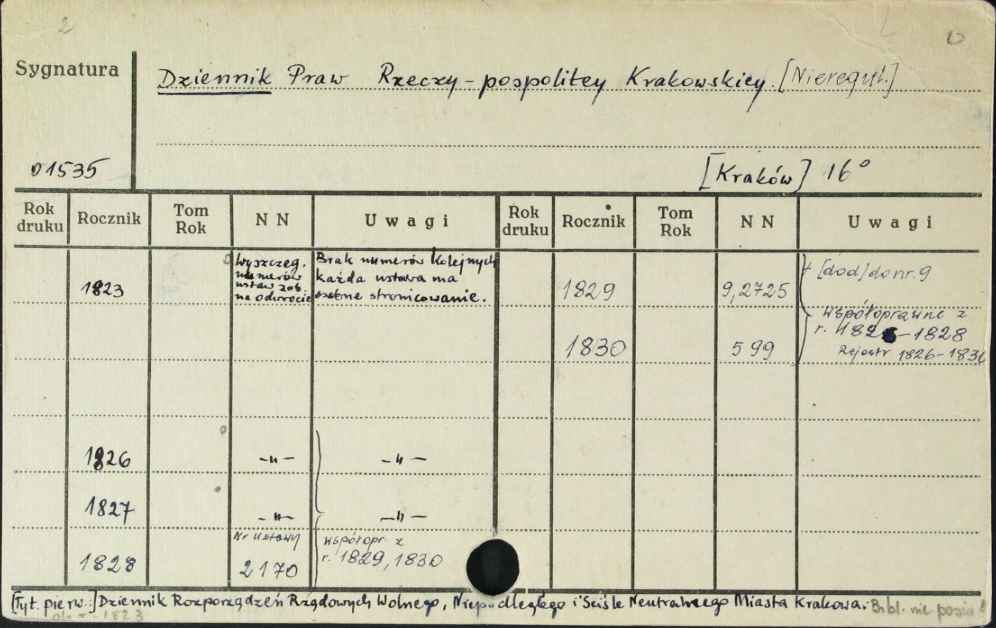 2
Sygnatura
Dziennik Praw Rzeczy-pospolitey Krakowskiey. [Nieregul.]
01535
[Kraków] 16°
Rok druku Rocznik Tom Rok NN Uwagi Rok druku Rocznik Tom Rok NN Uwagi
1823
Wyszczeg.
numerów
ustaw zob.
na odwrocie
Brak numerów kolejnych
każda ustawa ma
osobne stronicowanie.
1829 9,2725 + [dod] do nr. 9
1830 599
Współoprawne z
r. 1826-1828
Rejestr 1826-1830
1826 -"- -"-
1827 -"- -"-
Nr ustawy
1828 2170
Współopr z
r. 1829, 1830
[Tyt. pierw.:] Dziennik Rozporządzeń Rządowych Wolnego, Niepodległego i Ściśle Neutralnego Miasta Krakowa. Bibl. nie posia
r. 1823